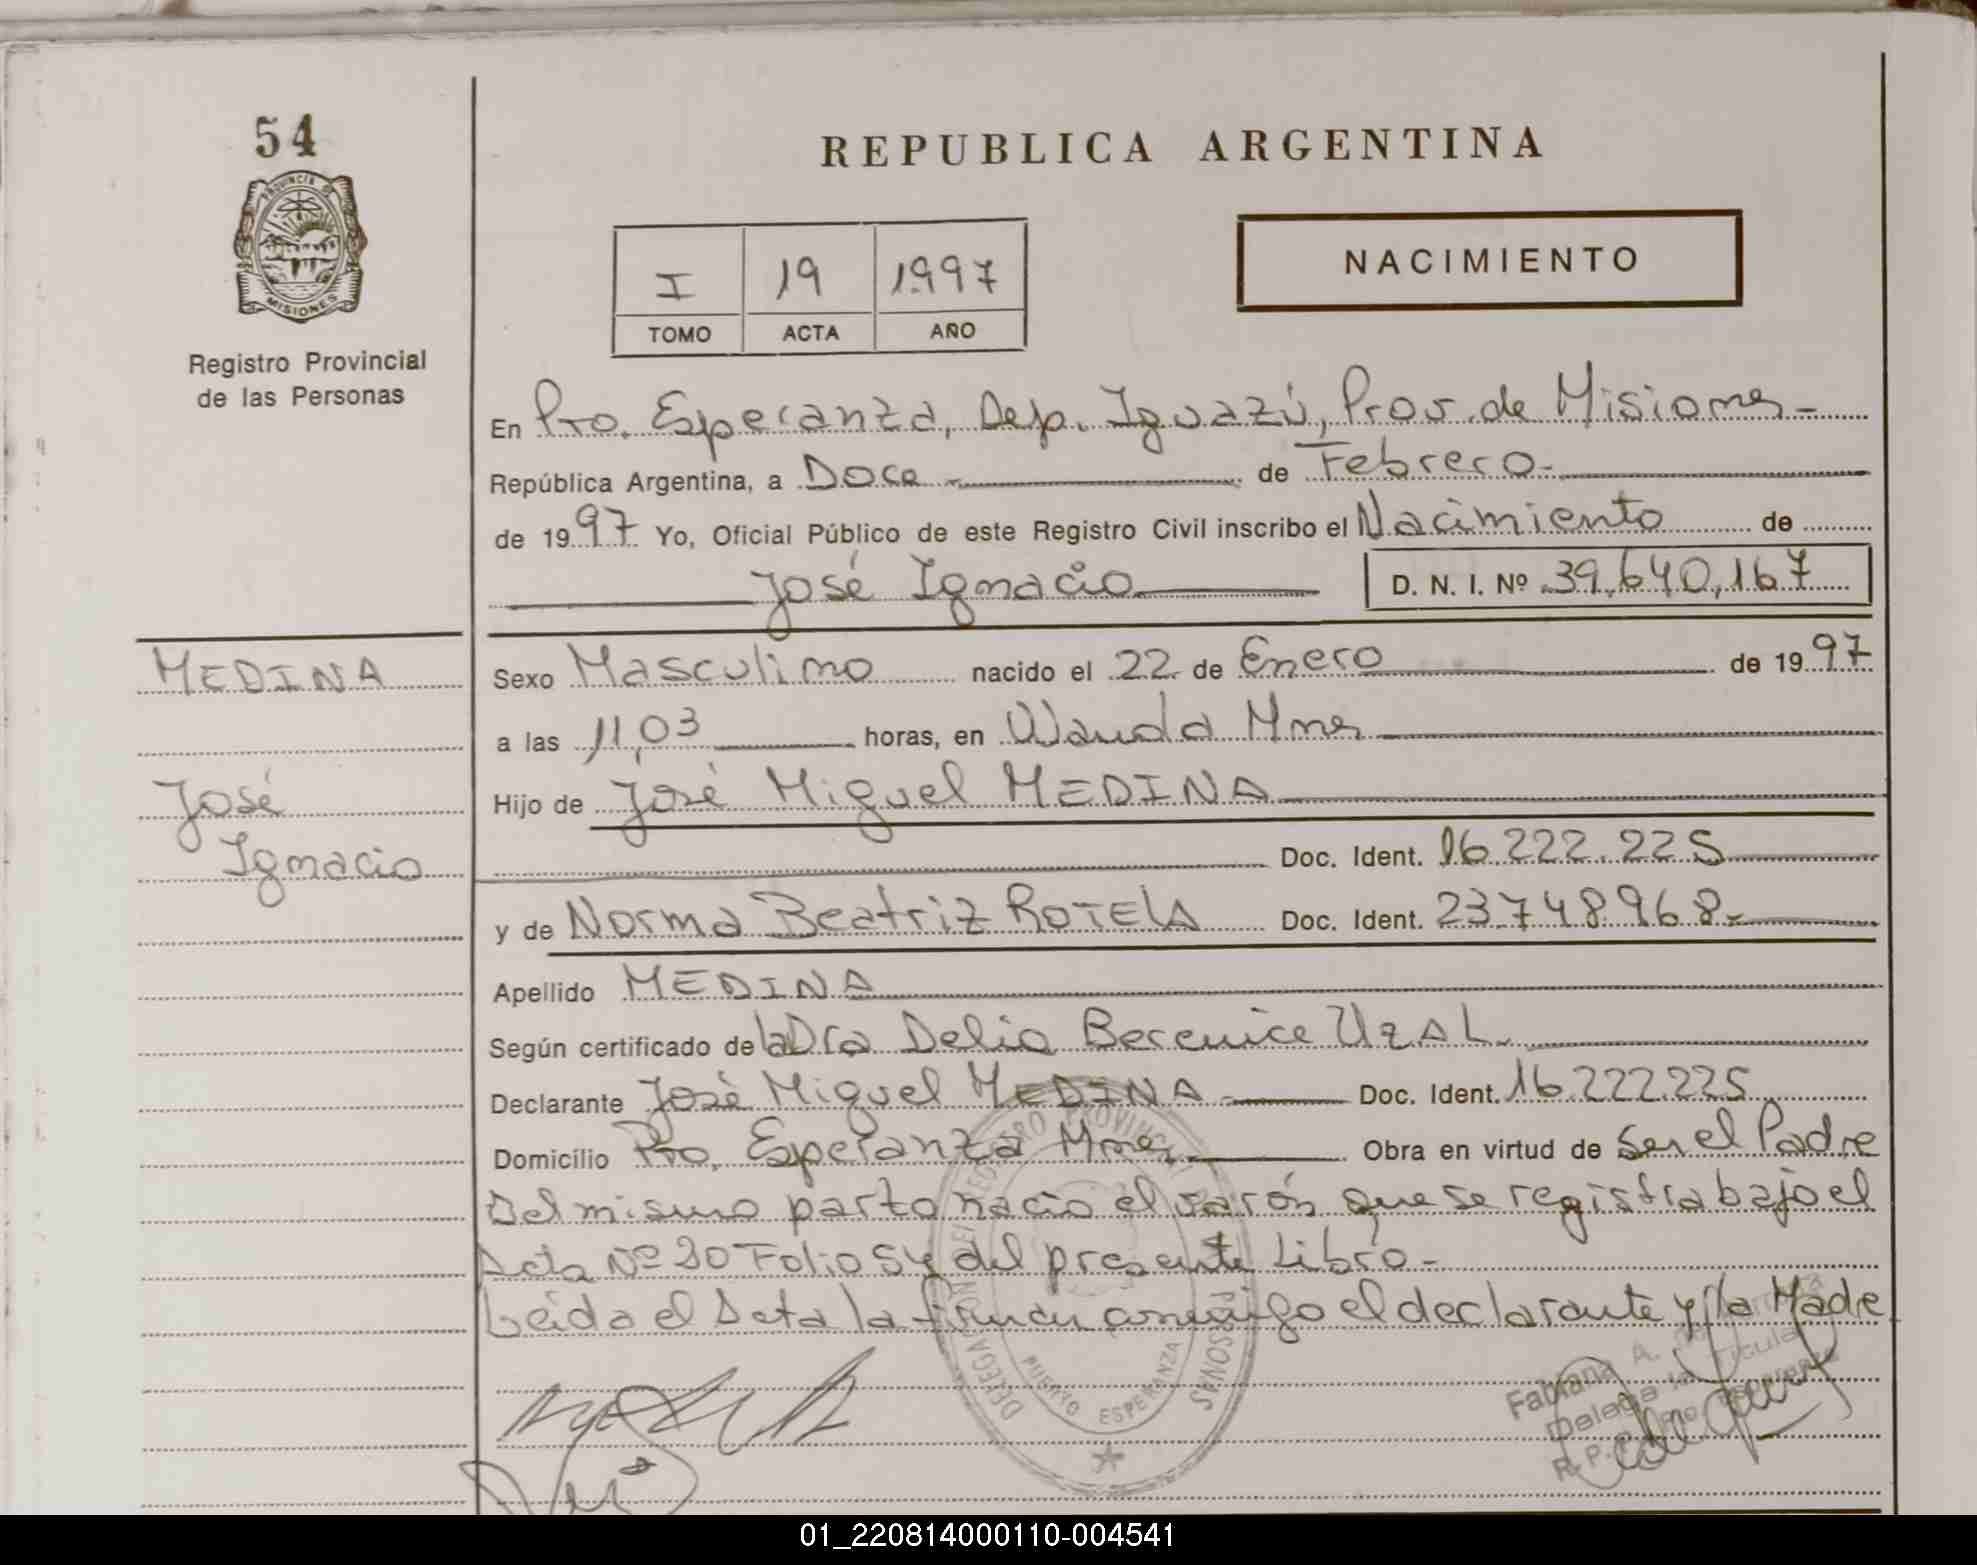 54
PROVINCIA DE
MISIONES
Registro Provincial
de las Personas
REPUBLICA ARGENTINA
I 19 1997
TOMO ACTA AÑO
NACIMIENTO
En Pto. Esperanza, Dep. Iguazú, Prov. de Misiones -
República Argentina, a Doce de Febrero.
de 1997 Yo, Oficial Público de este Registro Civil inscribo el Nacimiento de
José Ignacio D. N. I. Nº 39,640,167
MEDINA
José
Ignacio
Sexo Masculino nacido el 22 de Enero de 1997
a las 11,03 horas, en Wanda Mnes
Hijo de José Miguel MEDINA
Doc. Ident. 16.222.225
y de Norma Beatriz ROTELA Doc. Ident. 23.748.968.-
Apellido MEDINA
Según certificado de la Dra Delia Berenice UZAL.
Declarante José Miguel MEDINA Doc. Ident. 16.222.225
Domicilio Pto. Esperanza Mnes. Obra en virtud de Ser el Padre
Del mismo parto nacio el varón que se registra bajo el
Acta Nº 20 Folio 54 del presente Libro.-
Leida el Acta la firman conmigo el declarante y la Madre
PUERTO ESPERANZA
Fabiana A.
Delegada Titular
R. P. P. Pto. Esperanza
01_220814000110-004541